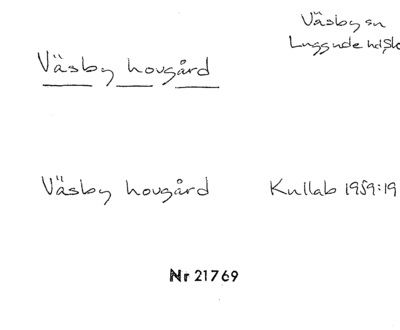 Väsby sn
Luggude hd, Sk
Väsby hovgård
Väsby hovgård Kullab 1959:19
Nr 21769